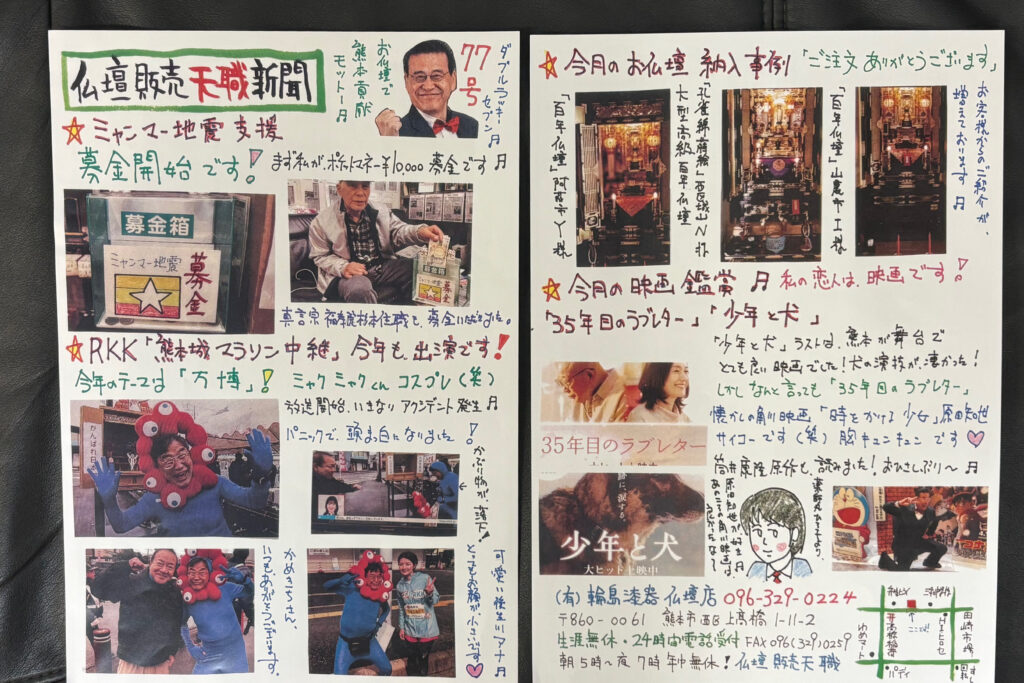 仏壇販売天職新聞
お仏壇で
熊本貢献
モットー♬
77号
ダブルラッキー
セブン♬
☆ミャンマー地震支援
募金開始です!
まず私が、ポケットマネー¥10,000募金です♬
募金箱
ミャンマー地震
募金
真言宗
住職も、募金いただきました。
☆RKK「熊本城マラソン中継」今年も、出演です!
今年のテーマは「万博」!
ミャクミャクくん コスプレ(笑)
放送開始、いきなりアクシデント発生♬
パニックで、頭ま白になりました!
かぶり物が、落下!
がんばれ日
かめきちさん、
いつもありがとうございます。
可愛い後生川アナ♬
とってもお顔が、小さいです。
☆今月のお仏壇 納入事例「ご注文ありがとうございます」
「百年仏壇」阿蘇市Y様
大型高級百年仏壇
「百年仏壇」山鹿市I様
お客様からのご紹介が、
増えております♬
☆今月の映画鑑賞♬ 私の恋人は、映画です!
「35年目のラブレター」「少年と犬」
「少年と犬」ラストは、熊本が舞台で
とても良い映画でした!犬の演技が、凄かった!
しかしなんと言っても「35年目のラブレター」
懐かしの角川映画「時をかける少女」原田知世
サイコーです(笑)胸キュンキュンです
筒井康隆原作も、読みました!おひさしぶり〜♬
35年目のラブレター
大ヒット上映中
涙する。
少年と犬
大ヒット上映中
薬師丸ひろ子より、
原田知世が好き♬
あのころの角川映画は、
(有)輪島漆器仏壇店 096-329-0224
〒860-0061 熊本市西区上高橋1-11-2
生涯無休・24時間電話受付 FAX 096(329)0259
朝5時〜夜7時 年中無休!仏壇販売天職
ここです!
高橋稲荷
ゆめマート
田崎市場